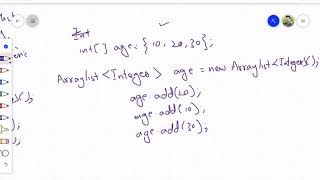 Int
int[] age = {10, 20, 30};
Arraylist<Integer> age = new Arraylist<Integer>();
age.add(20);
age.add(10);
age.add(30);